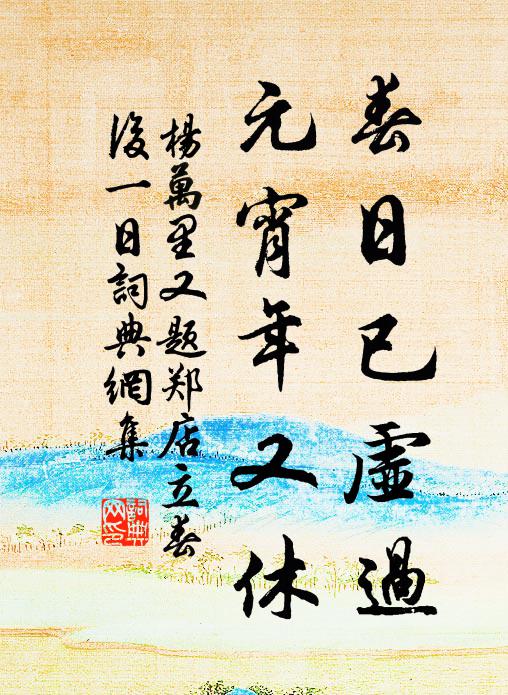 春日已虛過
元宵年又休
楊萬里又题郑店立春
後一日詞典網集
詞典网印